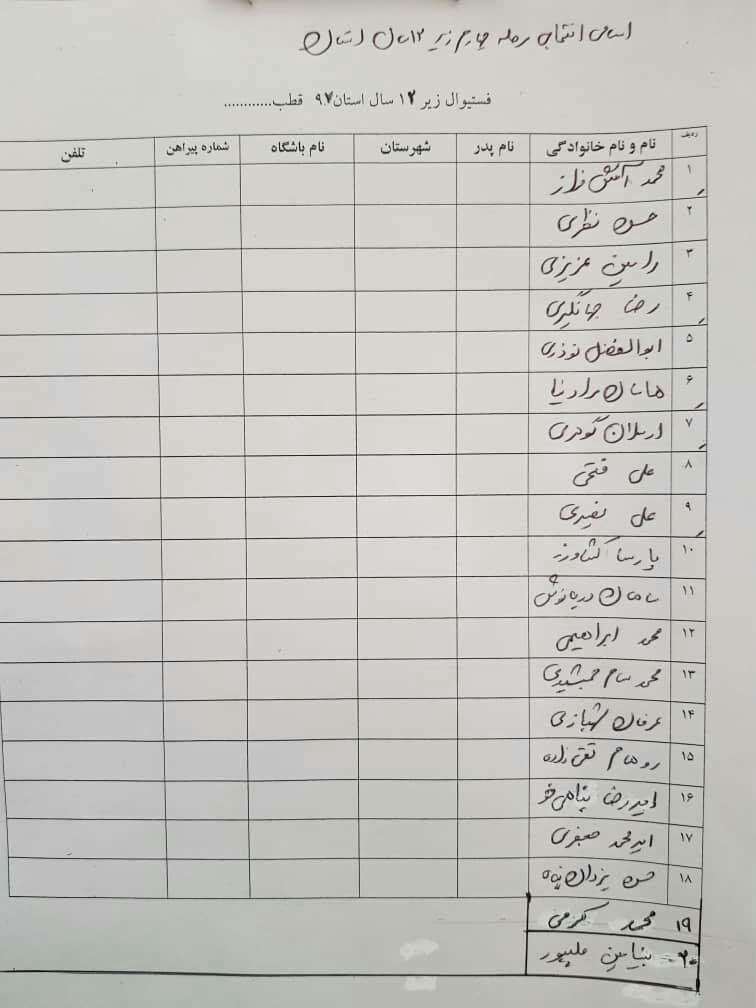 اسامی انتخابی مرحله چهارم زیر ۱۲ سال استان
فستیوال زیر ۱۲ سال استان ۹۷ قطب............
ردیف نام و نام خانوادگی نام پدر شهرستان نام باشگاه شماره پیراهن تلفن
۱ محمد آتش فراز
۲ حسن نظری
۳ رامین عزیزی
۴ رضا جهانگیری
۵ ابوالفضل نوذری
۶ ماهان رادنیا
۷ ارسلان گودرزی
۸ علی فتحی
۹ علی نصیری
۱۰ پارسا کشاورز
۱۱ سامان دریانوش
۱۲ محمد ابراهیمی
۱۳ محمد سام جمشیدی
۱۴ عرفان شهبازی
۱۵ روهام تقی زاده
۱۶ امیررضا پناهی فر
۱۷ امیرمحمد جعفری
۱۸ حسن یزدان پناه
۱۹ محمد کرمی
۲۰- بنیامین علیپور